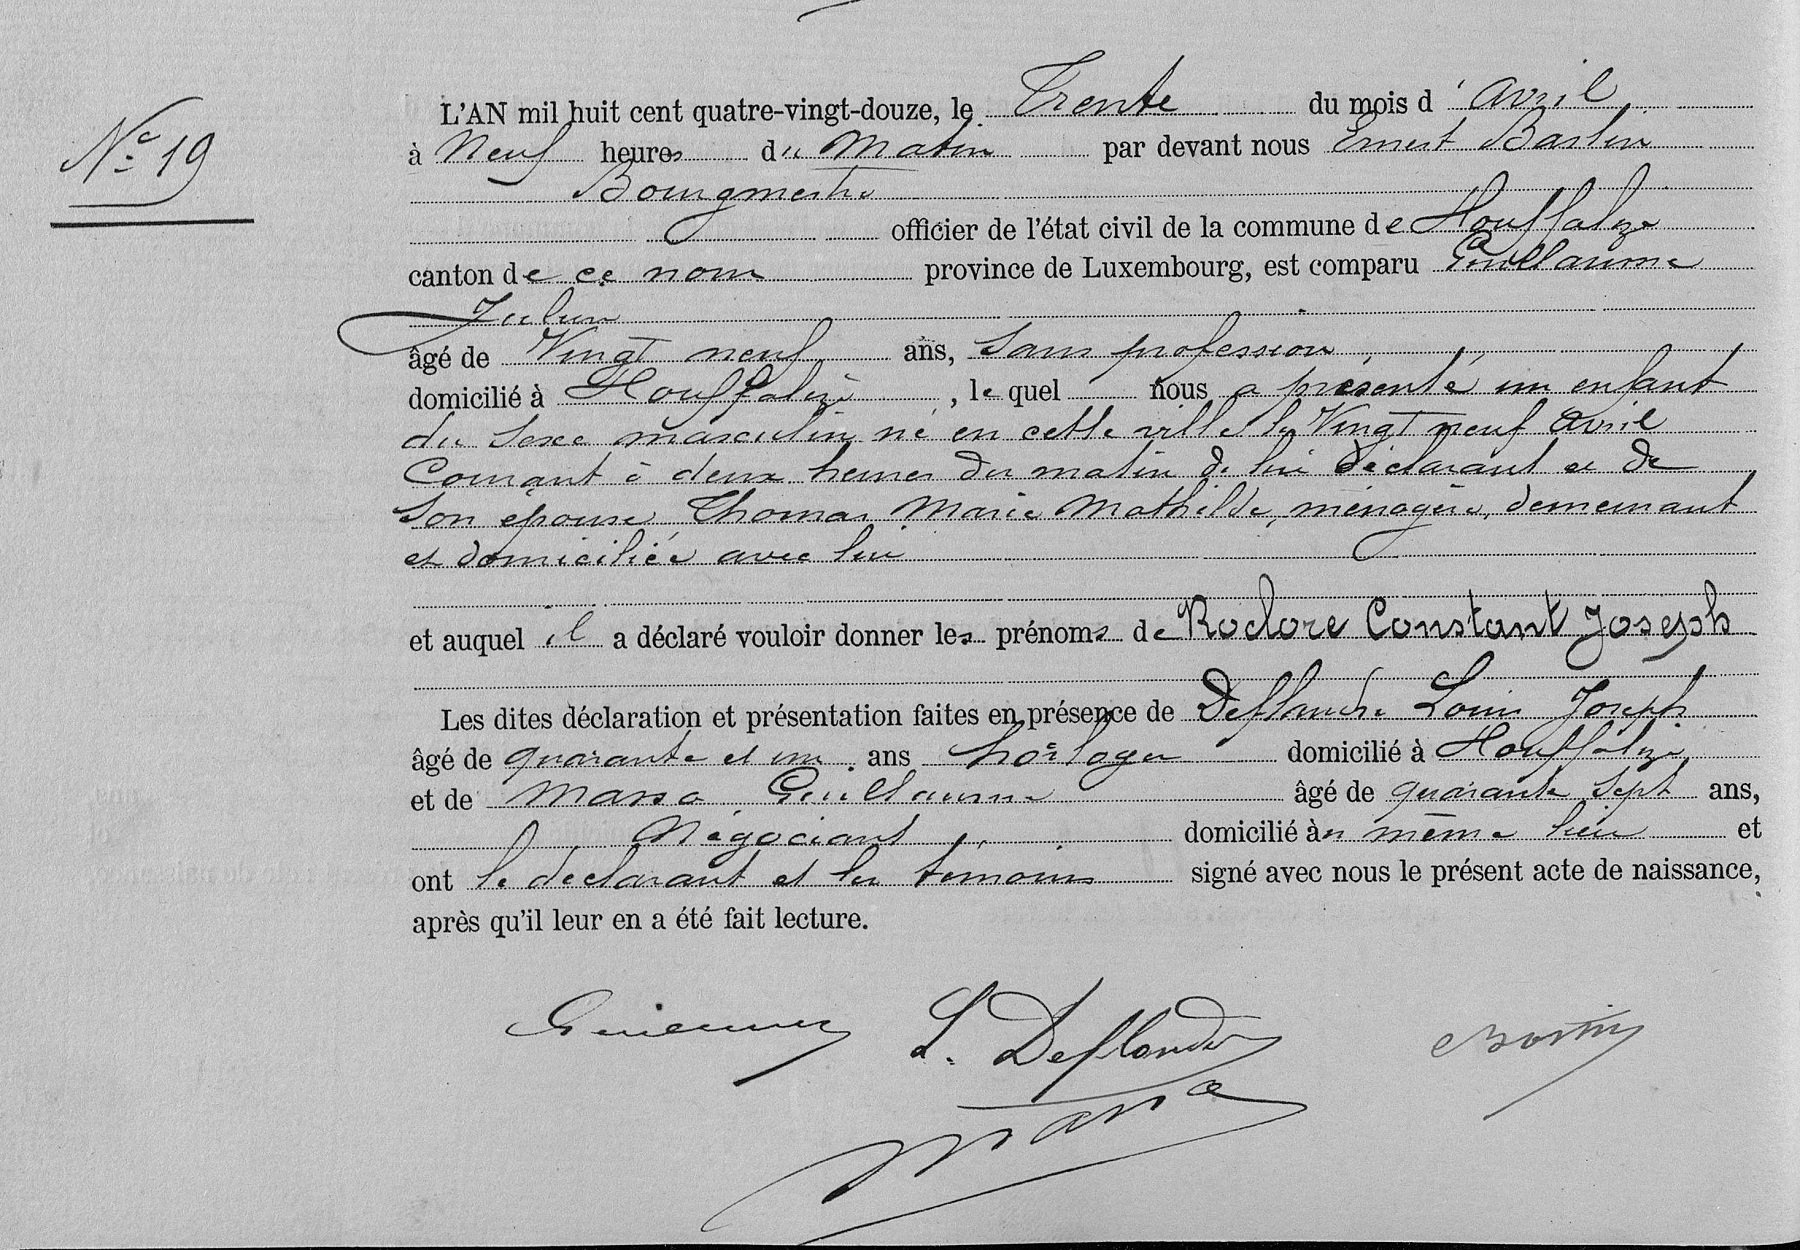 N° 19
L'AN mil huit cent quatre-vingt-douze, le Trente du mois d'avril
à Neuf heures du Matin par devant nous Ernest Bastin
Bourgmestre
officier de l'état civil de la commune de Houffalize
canton de ce nom province de Luxembourg, est comparu Guillaume
Julien
âgé de Vingt neuf ans, sans profession,
domicilié à Houffalize, le quel nous a présenté un enfant
du sexe masculin né en cette ville le Vingt neuf avril
Courant à deux heures du matin de lui déclarant et de
son épouse Thomas Marie Mathilde, ménagère, demeurant
et domiciliée avec lui
et auquel il a déclaré vouloir donner les prénoms de Rodore Constant Joseph
Les dites déclaration et présentation faites en présence de Deflandre Louis Joseph
âgé de quarante et un ans horloger domicilié à Houffalize
et de Massa Guillaume âgé de quarante sept ans,
Négociant, domicilié àu même lieu et
ont le déclarant et les témoins signé avec nous le présent acte de naissance,
après qu'il leur en a été fait lecture.
L. Deflandre Bastin
Massa